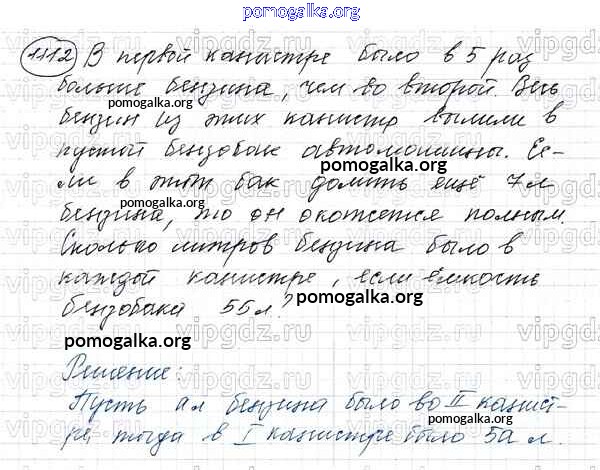 pomogalka.org
1112 В первой канистре было в 5 раз
больше бензина, чем во второй. Весь
pomogalka.org
бензин из этих канистр вылили в
пустой бензобак автомашины. Ес-
pomogalka.org
ли в этот бак долить ещё 7 л
pomogalka.org
бензина, то он окажется полным.
Сколько литров бензина было в
каждой канистре, если ёмкость
бензобака 55 л?
pomogalka.org
pomogalka.org
Решение:
Пусть а л бензина было во II канист-
pomogalka.org
ре, тогда в I канистре было 5а л.